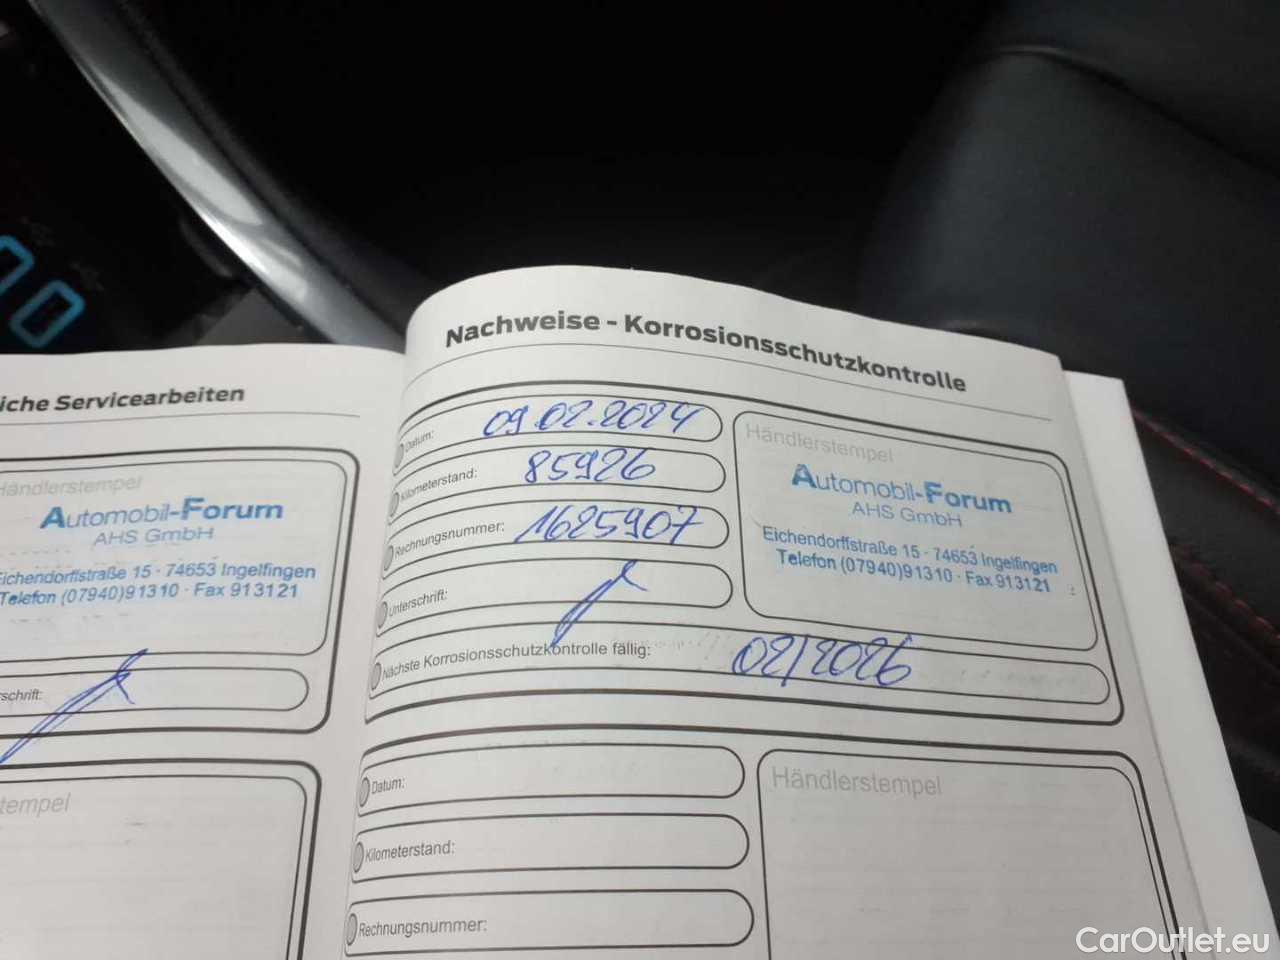 iche Servicearbeiten
Händlerstempel
Automobil-Forum
AHS GmbH
Eichendorffstraße 15 · 74653 Ingelfingen
Telefon (07940)91310 · Fax 913121
rschrift:
tempel
Nachweise - Korrosionsschutzkontrolle
Datum: 09.02.2024
Kilometerstand: 85926
Rechnungsnummer: 1625907
Unterschrift:
Händlerstempel
Automobil-Forum
AHS GmbH
Eichendorffstraße 15 · 74653 Ingelfingen
Telefon (07940)91310 · Fax 913121
Nächste Korrosionsschutzkontrolle fällig: 02/2026
Datum:
Kilometerstand:
Rechnungsnummer:
Händlerstempel
CarOutlet.eu